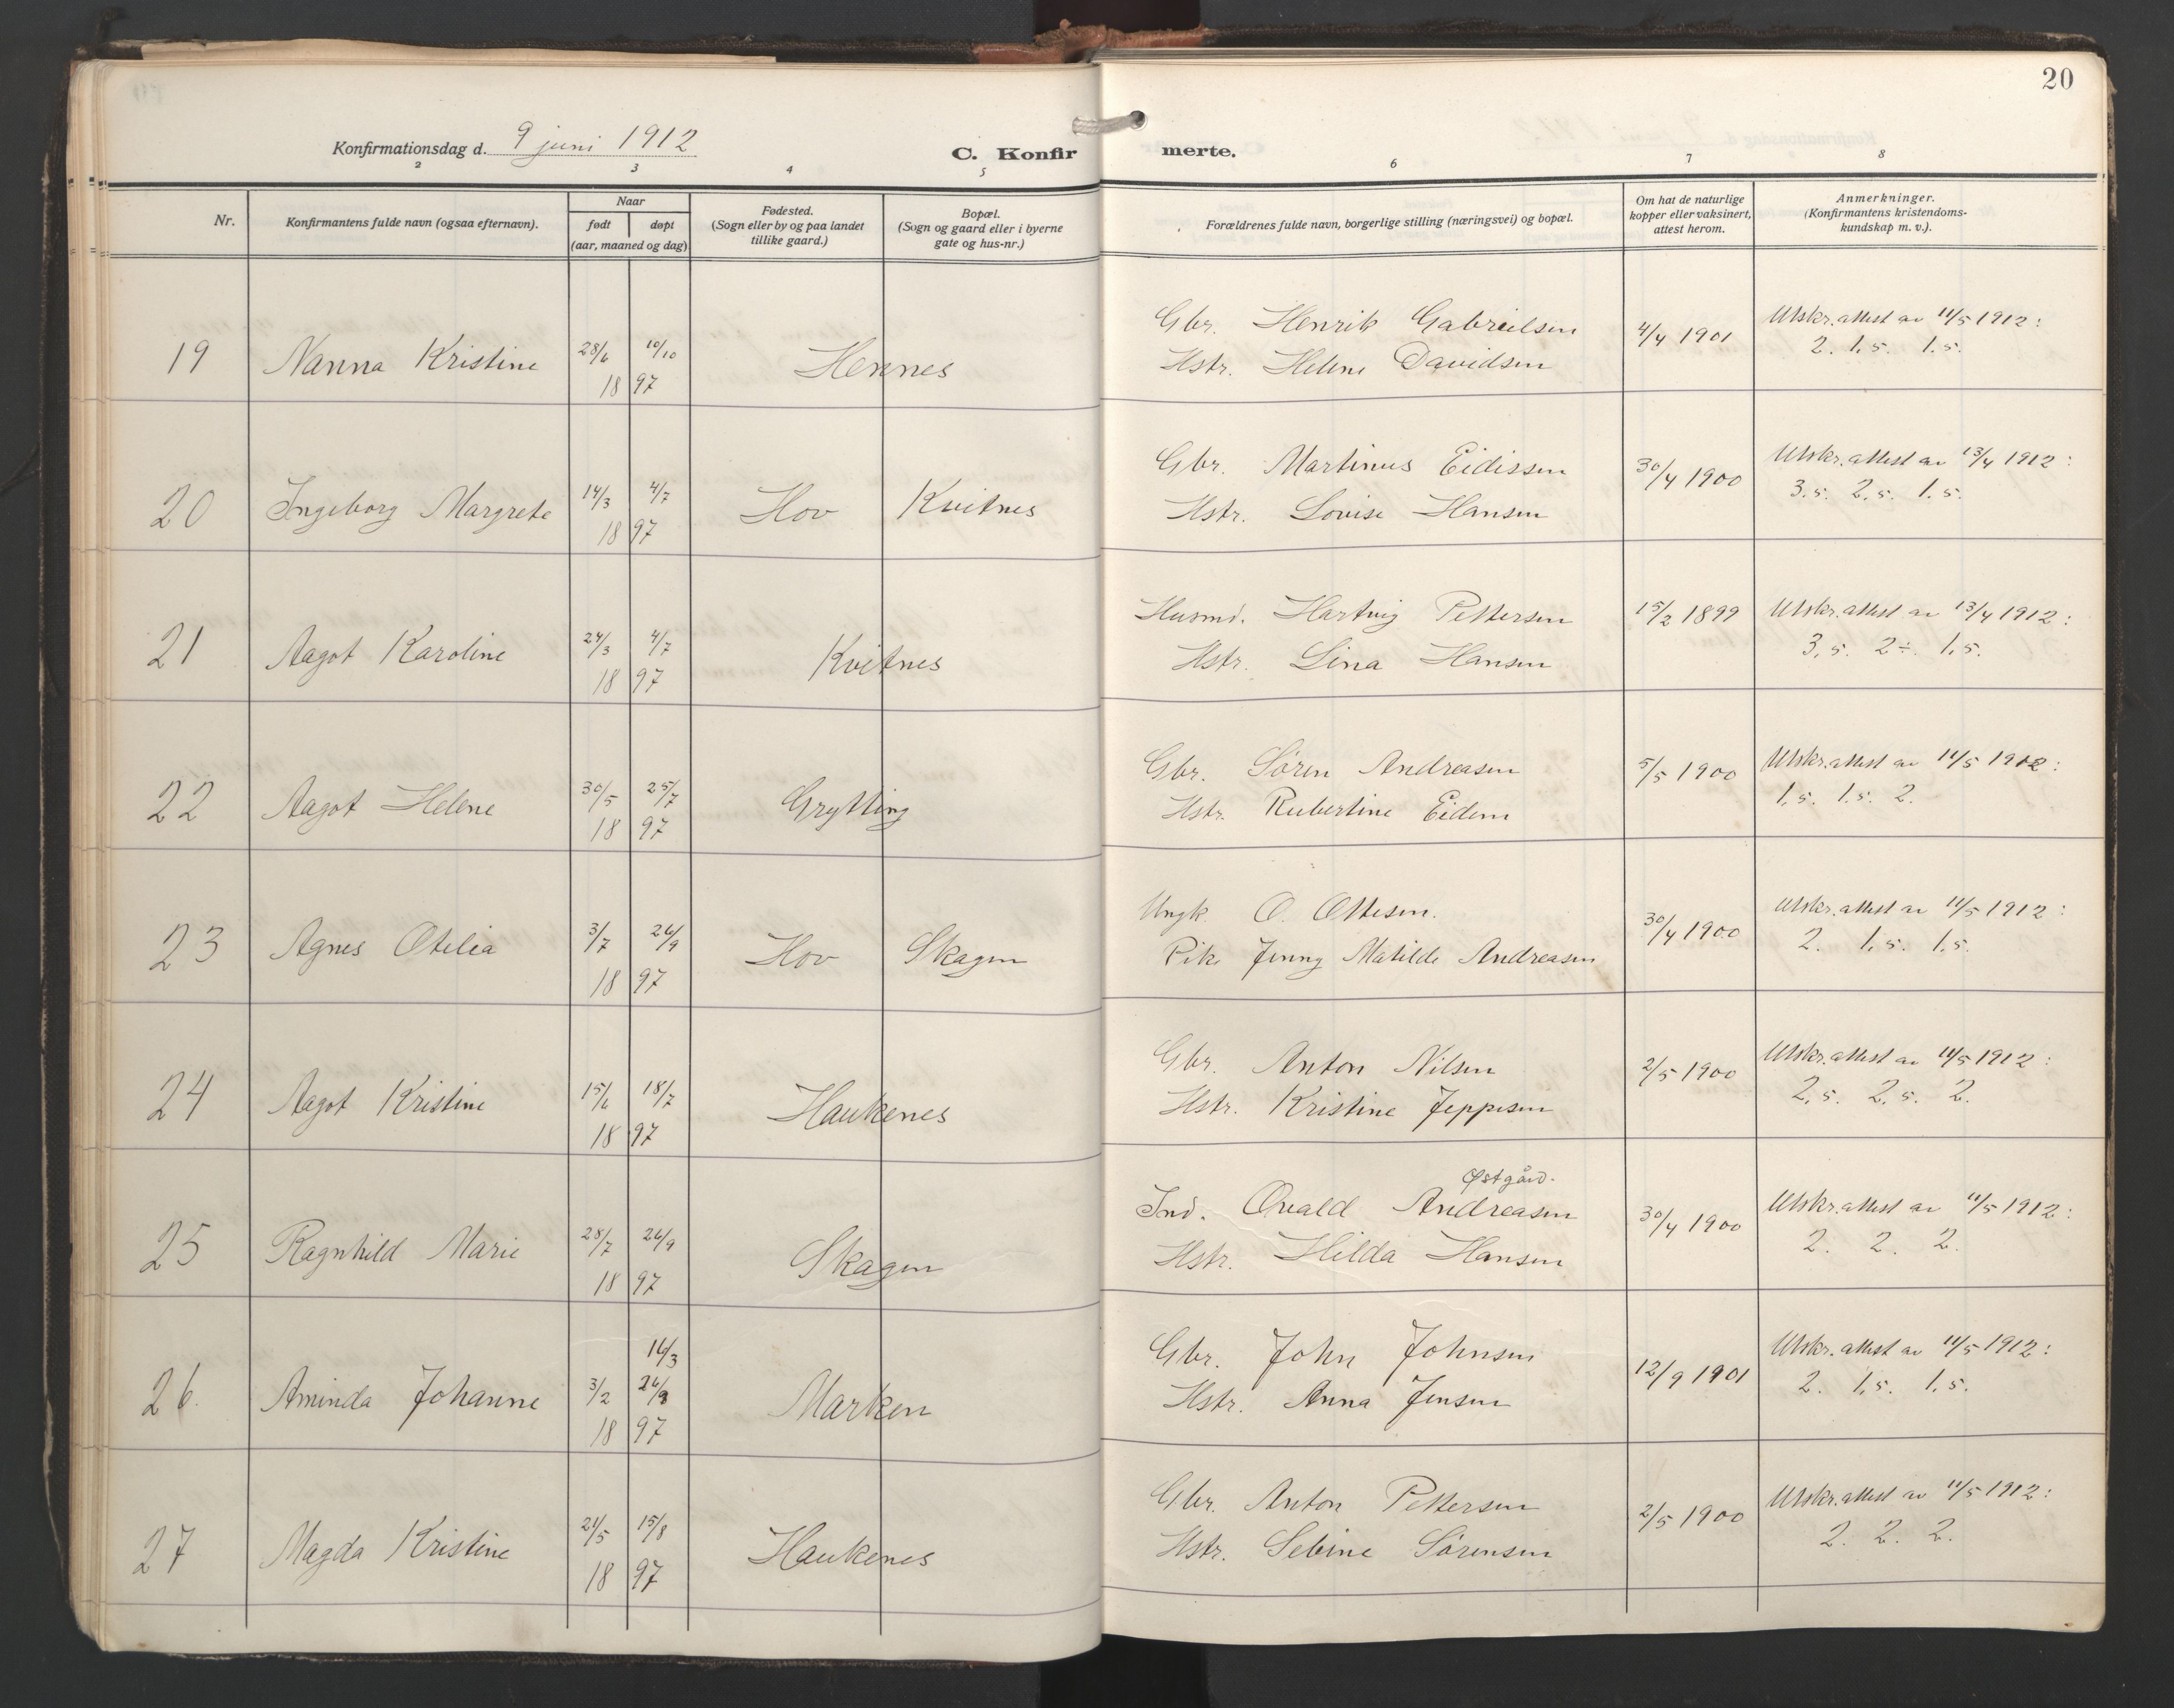 20
Konfirmationsdag d. 9 juni 1912
C. Konfirmerte.
2 3 4 5 6 7 8
Nr. Konfirmantens fulde navn (ogsaa efternavn). Naar født døpt (aar, maaned og dag) Fødested. (Sogn eller by og paa landet tillike gaard.) Bopæl. (Sogn og gaard eller i byerne gate og hus-nr.) Forældrenes fulde navn, borgerlige stilling (næringsvei) og bopæl. Om hat de naturlige kopper eller vaksinert, attest herom. Anmerkninger. (Konfirmantens kristendomskundskap m. v.).
19 Nanna Kristine 28/6 10/10 1897 Hennes Gbr. Henrik Gabrielsen 4/4 1901 Utskr. attest av 11/5 1912:
Hstr. Helene Davidsen 2. 1,5. 1.5.
20 Ingeborg Margrete 14/3 4/7 1897 Hov Kvitnes Gbr. Martinus Eidissen 30/4 1900 Utskr. attest av 13/4 1912:
Hstr. Lovise Hansen 3.5. 2,5. 1.5.
21 Aagot Karoline 24/3 4/7 1897 Kvitnes Husmd. Hartvig Pettersen 15/2 1899 Utskr. attest av 13/4 1912:
Hstr. Lina Hansen 3,5. 2÷. 1,5.
22 Aagot Helene 30/5 25/7 1897 Grytting Gbr. Søren Andreasen 5/5 1900 Utskr. attest av 11/5 1912:
Hstr. Rubertine Eidem 1,5. 1.5. 2.
23 Agnes Otelia 3/7 26/9 1897 Hov Skagen Ungk. O. Ottesen. 30/4 1900 Utskr. attest av 11/5 1912:
Pike Jenny Matilde Andreasen 2. 1,5. 1,5.
24 Aagot Kristine 15/6 18/7 1897 Haukenes Gbr. Anton Nilsen 2/5 1900 Utskr. attest av 11/5 1912:
Hstr. Kristine Jeppesen 2,5. 2,5. 2.
Østgård.
25 Ragnhild Marie 28/7 26/9 1897 Skagen Ind. Ovald Andreasen 30/4 1900 Utskr. attest av 11/5 1912:
Hstr. Hilda Hansen 2. 2. 2.
26. Aminda Johanne 3/2 14/3 1897 Marken Gbr. John Johnsen 12/9 1901 Utskr. attest av 11/5 1912:
Hstr. Anna Jensen 2. 1,5. 1,5.
27 Magda Kristine 21/5 15/8 1897 Haukenes Gbr. Anton Pettersen 2/5 1900 Utskr. attest av 11/5 1912:
Hstr. Sebine Sørensen 2. 2. 2.